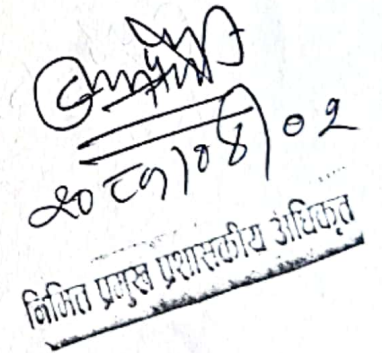 २०८१।०४।०२
निमित प्रमुख प्रशासकीय अधिकृत